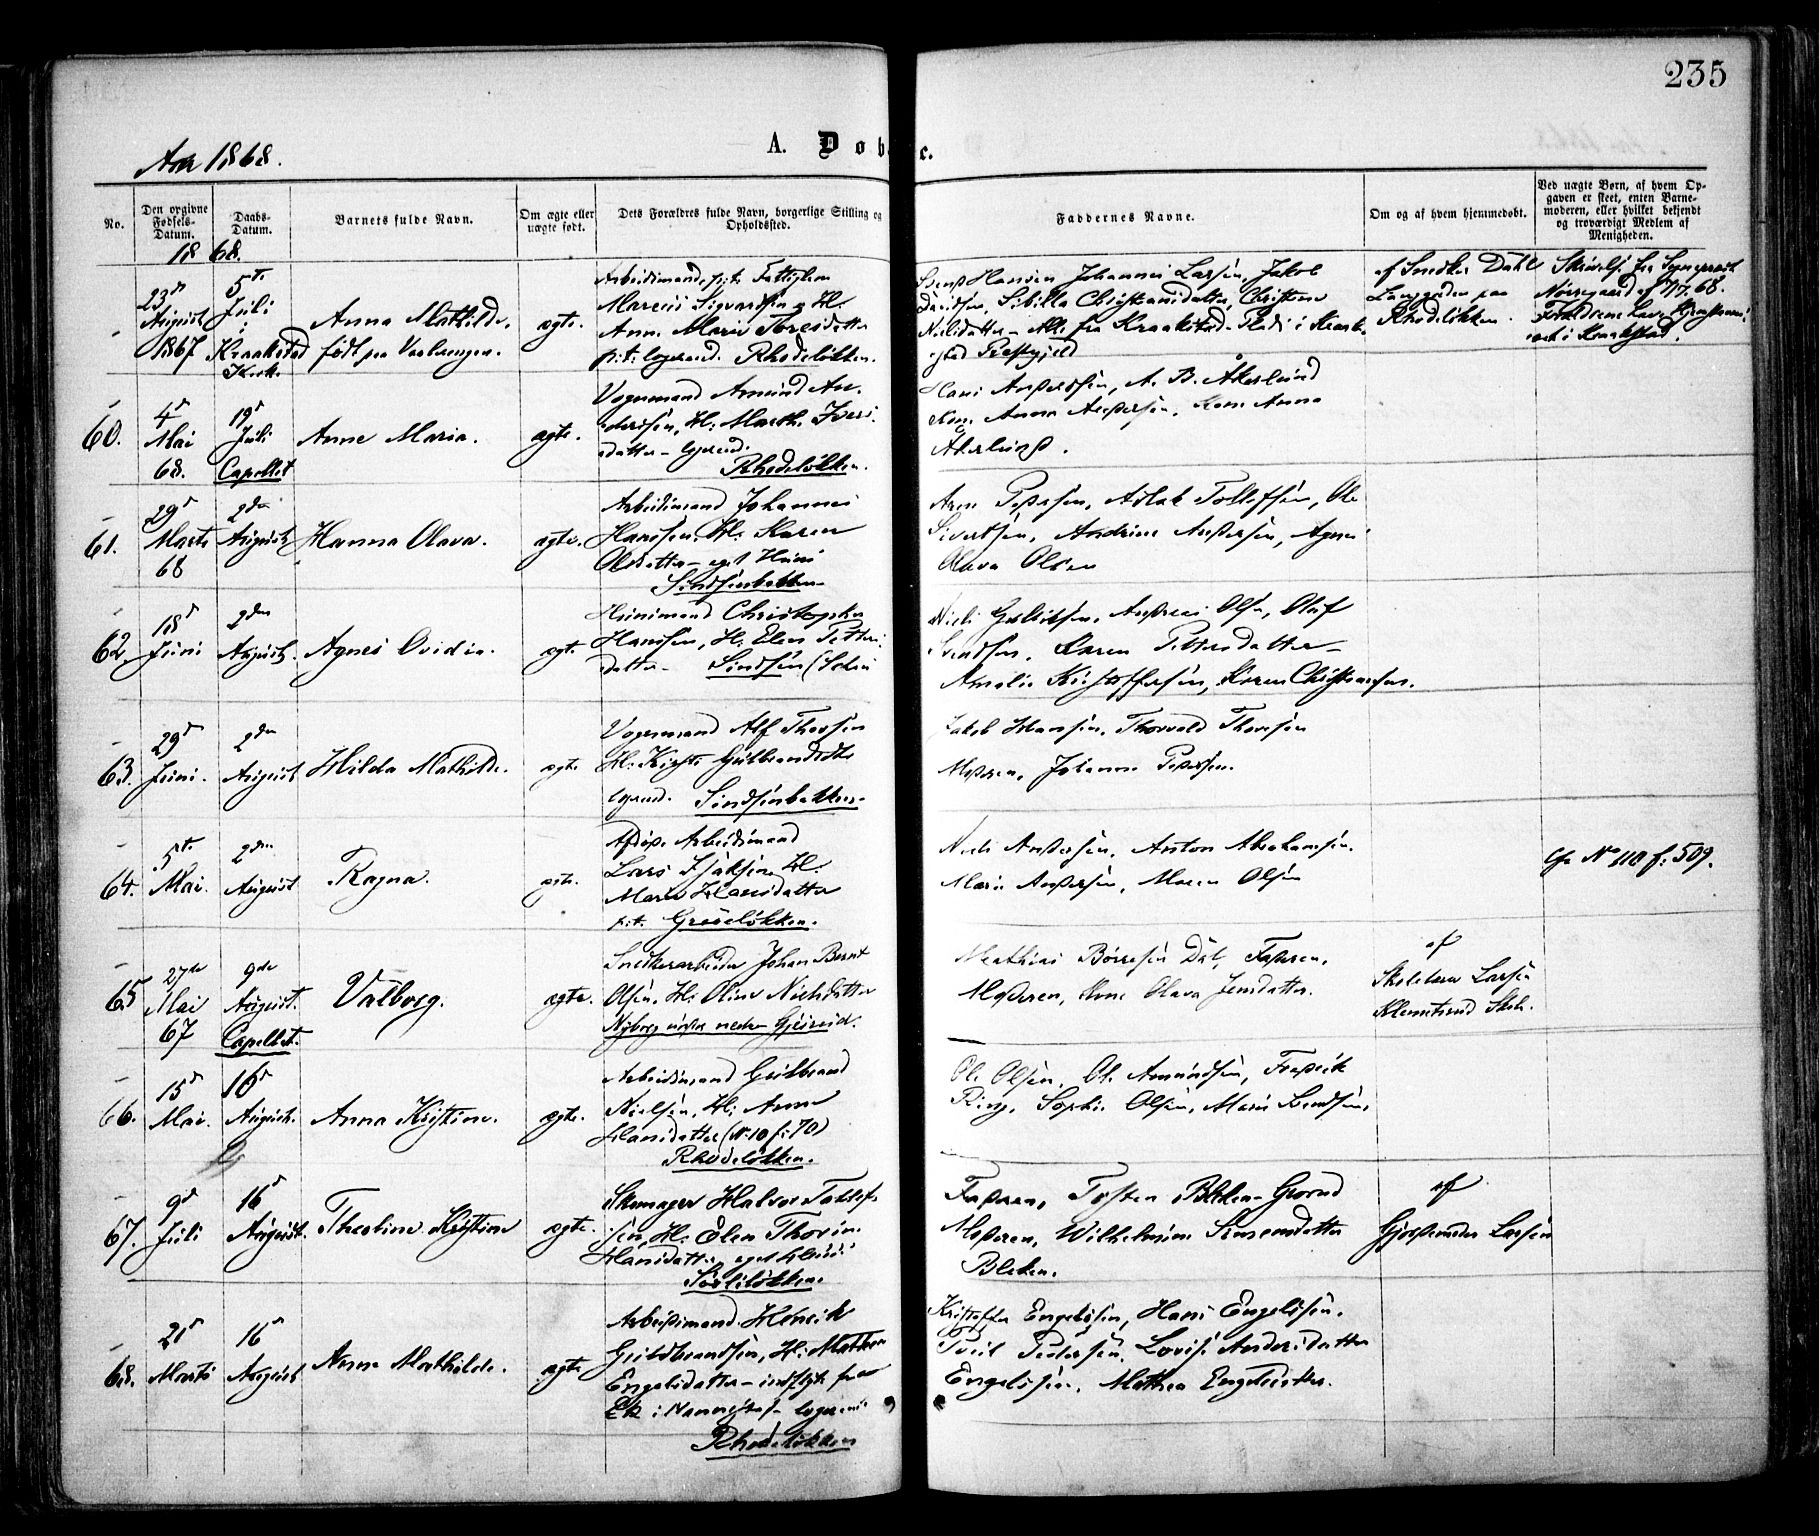 235
Aar 1868.
A. Døb
e.
No.
Den opgivne Fødsels-Datum.
Daabs-Datum.
Barnets fulde Navn.
Om ægte eller uægte født.
Dets Forældres fulde Navn, borgerlige Stilling og Opholdssted.
Faddernes Navne.
Om og af hvem hjemmedøbt.
Ved uægte Børn, af hvem Opgaven er skeet, enten Barnemoderen, eller hvilket bekjendt og troværdigt Medlem af Menigheden.
18 68.
23de August 1867
5te Juli i Kraakstad Kirk.
Anna Mathilde.
født paa Vaalerengen.
ægte.
Arbeidsmand, p.t. Fattiglem
Marcus Sigvardsen og H.
Anne Marie Toresdatter
p.t. logerend. Rhodeløkken.
Hansen, Johannes Larsen, Jakob
Davidsen, Sibilla Christiansdatter, Christine
Nielsdatter - alle fra Kraakstad
Præstgjeld
af Snedker Dahl
paa
Rhodeløkken.
Nørregaard af 7/7 68.
i Kraakstad.
60.
4de Mai 68.
19de Juli Capellet
Anne Maria.
ægte.
Vognmand Amund An-
dersen, H: Marth. Ivers-
datter - logerend.
Rhodeløkken.
Hans Andersen, A. B. Åkerlund
Kone Anna Andersen, Kone Anna
Åkerlund.
61.
29de Marts 68
2den August
Hanna Olava.
ægte.
Arbeidsmand Johannes
Hansen, H: Karen
Olsdatter - eget Huus
Sindsenbakken
Arne Pedersen, Aslak Tollefsen, Ole
Sivertsen, Andrine Andersen, Agnes
Olava Olsen
62.
18de Juni
2den August.
Agnes Ovidia.
ægte.
Huusmand Christopher
Hansen, H: Elen Petters-
datter - Sindsen
Niels Gulliksen, Andreas Olsen, Olaf
Svendsen, Karen Pettersdatter
Amalie Kristoffersen, Karen Christiansen.
63.
29de Juni.
2den August
Hilda Mathilde.
ægte.
Vognmand Alf Thorsen
H: Kirsti Gulbrandsdtr
logerend. Sindsenbakken
Jakob Hansen, Thorvald Thoresen
Moderen, Johanne Pedersen.
64.
5te Mai.
2den August
Ragna.
ægte.
Afdøde Arbeidsmand
Lars Isaksen, H.
Maren Hansdatter
p.t. Grüneløkken.
Niels Andersen, Anton Abrahamsen.
Marie Andersen, Maren Olsen
Cfr No 110 f: 509.
65
27de Mai 67
9de August. Capellet.
Valborg.
ægte.
Snedkerarbeider Johan Bernt
Olsen, H: Oline Nielsdatter
Nyborg under nedre
Mathias Børresen Dal, Faderen,
Moderen, Kone Olava Jensdatter.
af
Skolelærer Larsen
Klemetsrud Skole.
66.
15de Mai.
16de August.
Anna Kristine.
ægte.
Arbeidsmand Gulbrand
Nielsen, H: Anne
Hansdatter (N: 10 f: 70)
Rhodeløkken.
Ole Olsen, Ole Amundsen, Fredrik
Ring, Sophie Olsen, Marie Svendsen.
67.
9de Juli
16de August.
Theoline Kristine
ægte.
Skomager Halvor Tollef-
sen, H: Elen Thorine
Hansdatter, eget Huus
Sørliløkken.
Faderen, Tosten Bleken-Grorud
Moderen, Wilhelmine Simensdatter
Bleken.
af
Gjordemoder Larsen
68.
21de Marts
16de August
Anne Mathilde.
ægte
Arbeidsmand Henrik
Guldbrandsen, H: Mathea
Engelsdatter - indflyt. fra
Ek i Nannestad - logerend
Rhodeløkken
Kristoffer Engelsen, Hans Engelsen,
Peder Pedersen, Lovise Andersdatter
Engelsen, Mathea Engelsdtr.